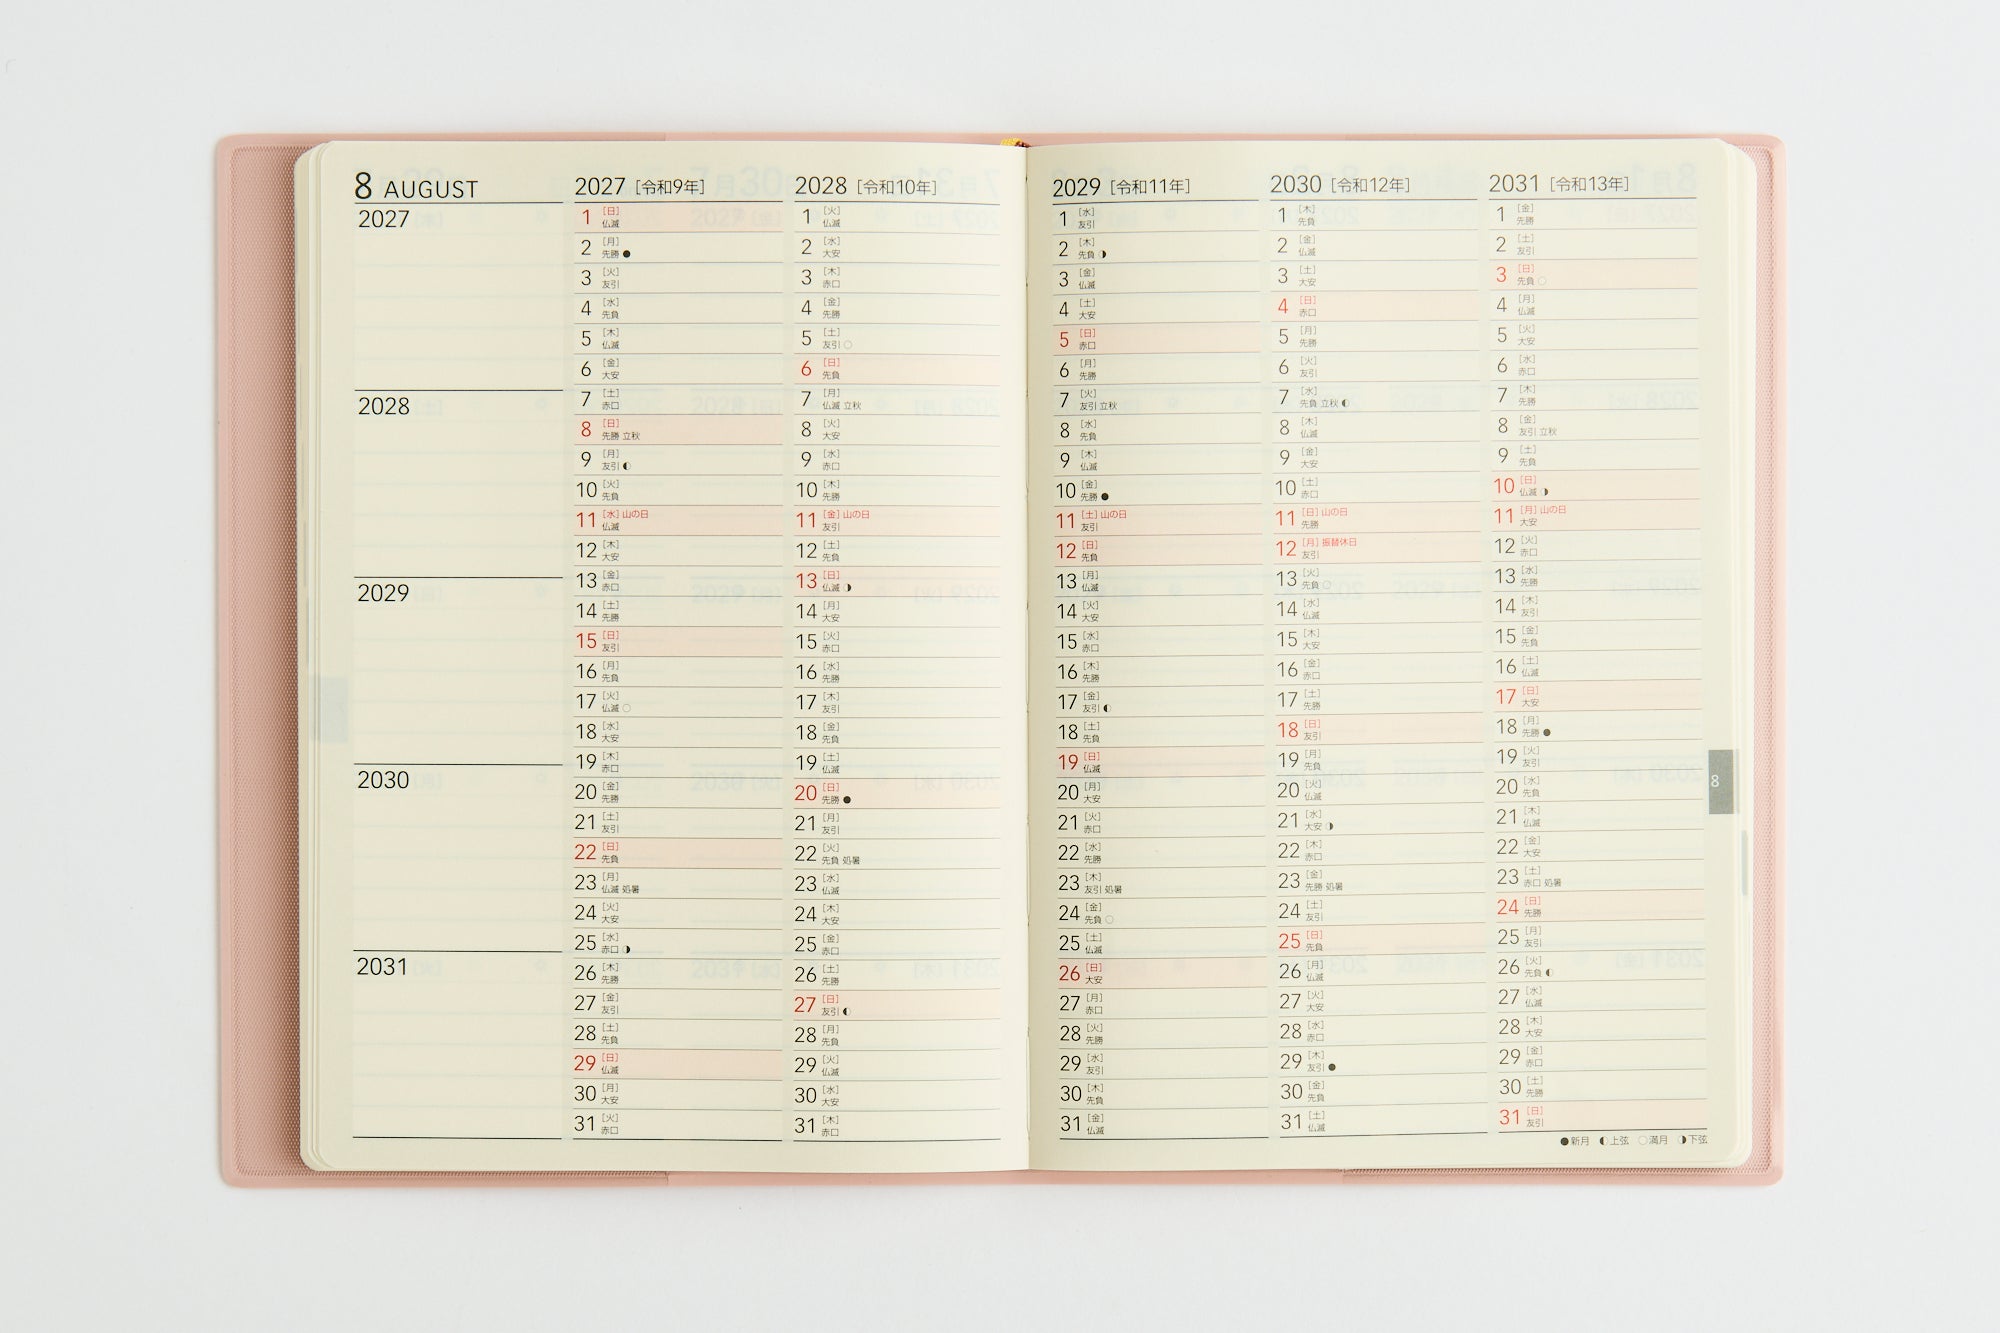 8 AUGUST
2027
2028
2029
2030
2031
2027 [令和9年]
1 [日]
仏滅
2 [月]
先勝 ●
3 [火]
友引
4 [水]
先負
5 [木]
仏滅
6 [金]
大安
7 [土]
赤口
8 [日]
先勝 立秋
9 [月]
友引 ◐
10 [火]
先負
11 [水] 山の日
仏滅
12 [木]
大安
13 [金]
赤口
14 [土]
先勝
15 [日]
友引
16 [月]
先負
17 [火]
仏滅 ○
18 [水]
大安
19 [木]
赤口
20 [金]
先勝
21 [土]
友引
22 [日]
先負
23 [月]
仏滅 処暑
24 [火]
大安
25 [水]
赤口 ◑
26 [木]
先勝
27 [金]
友引
28 [土]
先負
29 [日]
仏滅
30 [月]
大安
31 [火]
赤口
2028 [令和10年]
1 [火]
仏滅
2 [水]
大安
3 [木]
赤口
4 [金]
先勝
5 [土]
友引 ○
6 [日]
先負
7 [月]
仏滅 立秋
8 [火]
大安
9 [水]
赤口
10 [木]
先勝
11 [金] 山の日
友引
12 [土]
先負
13 [日]
仏滅 ◑
14 [月]
大安
15 [火]
赤口
16 [水]
先勝
17 [木]
友引
18 [金]
先負
19 [土]
仏滅
20 [日]
先勝 ●
21 [月]
友引
22 [火]
先負 処暑
23 [水]
仏滅
24 [木]
大安
25 [金]
赤口
26 [土]
先勝
27 [日]
友引 ◐
28 [月]
先負
29 [火]
仏滅
30 [水]
大安
31 [木]
赤口
2029 [令和11年]
1 [水]
友引
2 [木]
先負 ◑
3 [金]
仏滅
4 [土]
大安
5 [日]
赤口
6 [月]
先勝
7 [火]
友引 立秋
8 [水]
先負
9 [木]
仏滅
10 [金]
先勝 ●
11 [土] 山の日
友引
12 [日]
先負
13 [月]
仏滅
14 [火]
大安
15 [水]
赤口
16 [木]
先勝
17 [金]
友引 ◐
18 [土]
先負
19 [日]
仏滅
20 [月]
大安
21 [火]
赤口
22 [水]
先勝
23 [木]
友引 処暑
24 [金]
先負 ○
25 [土]
仏滅
26 [日]
大安
27 [月]
赤口
28 [火]
先勝
29 [水]
友引
30 [木]
先負
31 [金]
仏滅
2030 [令和12年]
1 [木]
先負
2 [金]
仏滅
3 [土]
大安
4 [日]
赤口
5 [月]
先勝
6 [火]
友引
7 [水]
先負 立秋 ◐
8 [木]
仏滅
9 [金]
大安
10 [土]
赤口
11 [日] 山の日
先勝
12 [月] 振替休日
友引
13 [火]
先負 ○
14 [水]
仏滅
15 [木]
大安
16 [金]
赤口
17 [土]
先勝
18 [日]
友引
19 [月]
先負
20 [火]
仏滅
21 [水]
大安 ◑
22 [木]
赤口
23 [金]
先勝 処暑
24 [土]
友引
25 [日]
先負
26 [月]
仏滅
27 [火]
大安
28 [水]
赤口
29 [木]
友引 ●
30 [金]
先負
31 [土]
仏滅
2031 [令和13年]
1 [金]
先勝
2 [土]
友引
3 [日]
先負 ○
4 [月]
仏滅
5 [火]
大安
6 [水]
赤口
7 [木]
先勝
8 [金]
友引 立秋
9 [土]
先負
10 [日]
仏滅 ◑
11 [月] 山の日
大安
12 [火]
赤口
13 [水]
先勝
14 [木]
友引
15 [金]
先負
16 [土]
仏滅
17 [日]
大安
18 [月]
先勝 ●
19 [火]
友引
20 [水]
先負
21 [木]
仏滅
22 [金]
大安
23 [土]
赤口 処暑
24 [日]
先勝
25 [月]
友引
26 [火]
先負 ◐
27 [水]
仏滅
28 [木]
大安
29 [金]
赤口
30 [土]
先勝
31 [日]
友引
8
●新月 ◐上弦 ○満月 ◑下弦